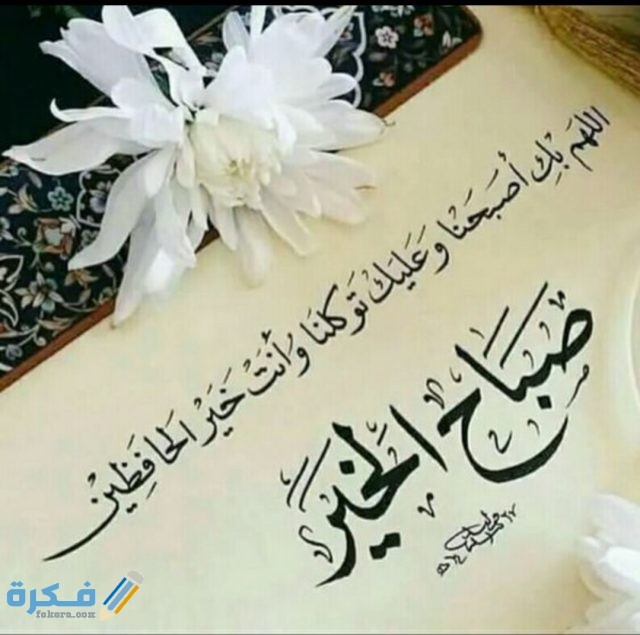 اللهم بِكِ أَصبَحَنا وَعَليَكَ تَوكلَنَا وَأَنتَ خَيَرْ الَحافِظَين
صَبَاح الخَيَر
فكرة
fekera.com